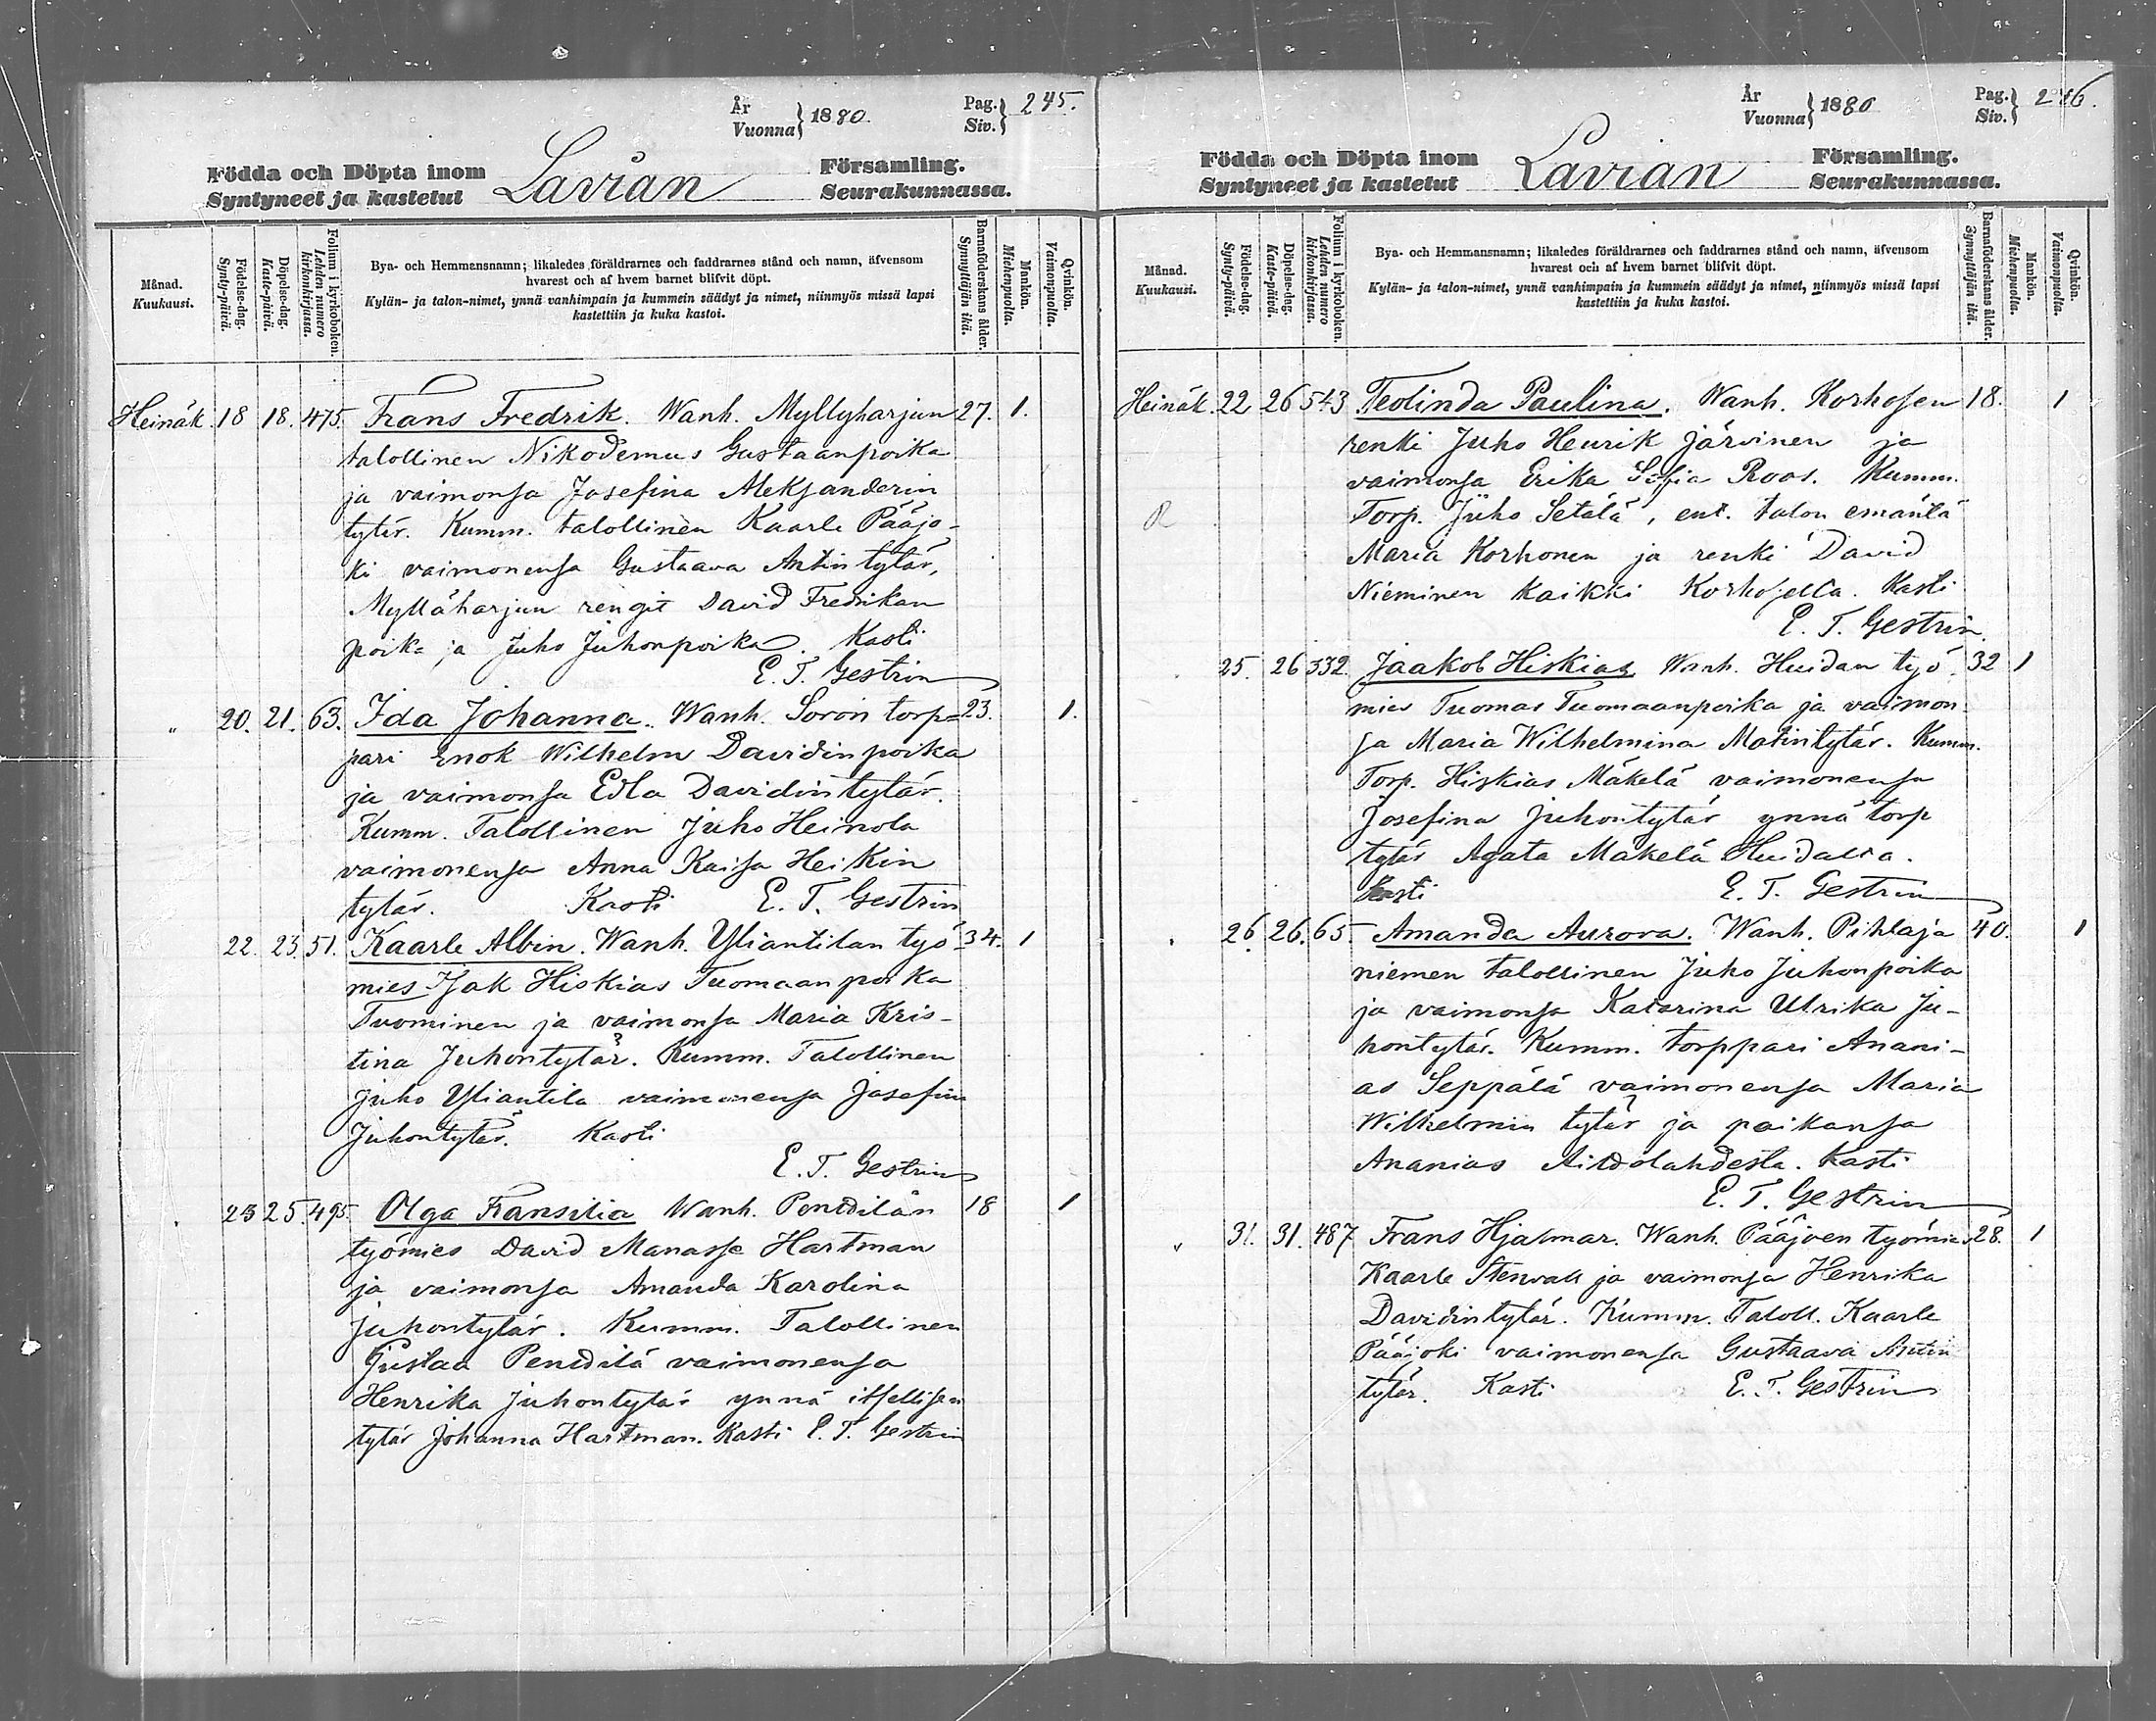 År
Vuonna } 1880.
Pag.
Siv. } 245.
Födda och Döpta inom
Syntyneet ja kastetut
Lavian
Församling.
Seurakunnassa.
Månad.
Kuukausi.
Födelse-dag.
Synty-päivä.
Döpelse-dag.
Kaste-päivä.
Folium i kyrkoboken.
Lehden numero
kirkonkirjassa.
Bya- och Hemmansnamn; likaledes föräldrarnes och faddrarnes stånd och namn, äfvensom
hvarest och af hvem barnet blifvit döpt.
Kylän- ja talon-nimet, ynnä vanhimpain ja kummein säädyt ja nimet, niinmyös missä lapsi
kastettiin ja kuka kastoi.
Barnaföderskans ålder.
Synnyttäjän ikä.
Mankön.
Miehenpuolta.
Qvinkön.
Vaimonpuolta.
Heinäk. 18 18. 475. Frans Fredrik. Wanh. Myllyharjun 27. 1.
talollinen Nikodemus Gustaanpoika
ja vaimonsa Josefina Aleksanderin
tytär. Kumm. talollinen Kaarle Pääjo-
ki vaimonensa Gustaava Antintytär,
Mylläharjun rengit David Fredrikan
poika ja Juho Juhonpoika. Kasti
E. T. Gestrin
" 20. 21. 63. Ida Johanna. Wanh. Soron torp= 23. 1.
pari Enok Wilhelm Davidinpoika
ja vaimonsa Edla Davidintytär.
Kumm. Talollinen Juho Heinola
vaimonensa Anna Kaisa Heikin
tytär. Kasti E. T. Gestrin
22. 23. 51. Kaarle Albin. Wanh. Yliantilan työ- 34. 1
mies Isak Hiskias Tuomaanpoika
Tuominen ja vaimonsa Maria Kris-
tina Juhontytär. Kumm. Talollinen
Juho Yliantila vaimonensa Josefina
Juhontytär. Kasti
E. T. Gestrin
23 25. 495. Olga Fransilia Wanh. Penttilän 18 1
työmies David Manasse Hartman
ja vaimonsa Amanda Karolina
Juhontytär. Kumm. Talollinen
Gustaa Penttilä vaimonensa
Henrika Juhontytär ynnä itsellisen
tytär Johanna Hartman. Kasti E. T. Gestrin
År
Vuonna } 1880
Pag.
Siv. } 246.
Födda och Döpta inom
Syntyneet ja kastetut
Lavian
Församling.
Seurakunnassa.
Månad.
Kuukausi.
Födelse-dag.
Synty-päivä.
Döpelse-dag.
Kaste-päivä.
Folium i kyrkoboken.
Lehden numero
kirkonkirjassa.
Bya- och Hemmansnamn; likaledes föräldrarnes och faddrarnes stånd och namn, äfvensom
hvarest och af hvem barnet blifvit döpt.
Kylän- ja talon-nimet, ynnä vanhimpain ja kummein säädyt ja nimet, niinmyös missä lapsi
kastettiin ja kuka kastoi.
Barnaföderskans ålder.
Synnyttäjän ikä.
Mankön.
Miehenpuolta.
Qvinkön.
Vaimonpuolta.
Heinäk. 22 26 543 Teolinda Paulina. Wanh. Korhosen 18. 1
renki Juho Henrik Järvinen ja
vaimonsa Erika Sofia Roos. Kumm.
R Torp. Juho Setälä, ent. talon emäntä
Maria Korhonen ja renki David
Nieminen kaikki Korhosella. Kasti
E. T. Gestrin.
25. 26 332. Jaakob Hiskias Wanh. Huidan työ- 32 1
mies Tuomas Tuomaanpoika ja vaimon-
sa Maria Wilhelmina Matintytär. Kumm.
Torp. Hiskias Mäkelä vaimonensa
Josefina Juhontytär ynnä torp
tytär Agata Mäkelä Huidalta.
Kasti E. T. Gestrin
26 26. 65. Amanda Aurora. Wanh. Pihlaja 40. 1
niemen talollinen Juho Juhonpoika
ja vaimonsa Katarina Ulrika Ju-
hontytär. Kumm. torppari Anani-
as Seppälä vaimonensa Maria
Wilhelmin tytär ja poikansa
Ananias Aittolahdesta. Kasti
E. T. Gestrin
" 31. 31. 487 Frans Hjalmar. Wanh. Pääjoen työmies 28. 1
Kaarle Stenvall ja vaimonsa Henrika
Davidintytär. Kumm. Taloll. Kaarle
Pääjoki vaimonensa Gustaava Antin
tytär. Kasti E. T. Gestrin